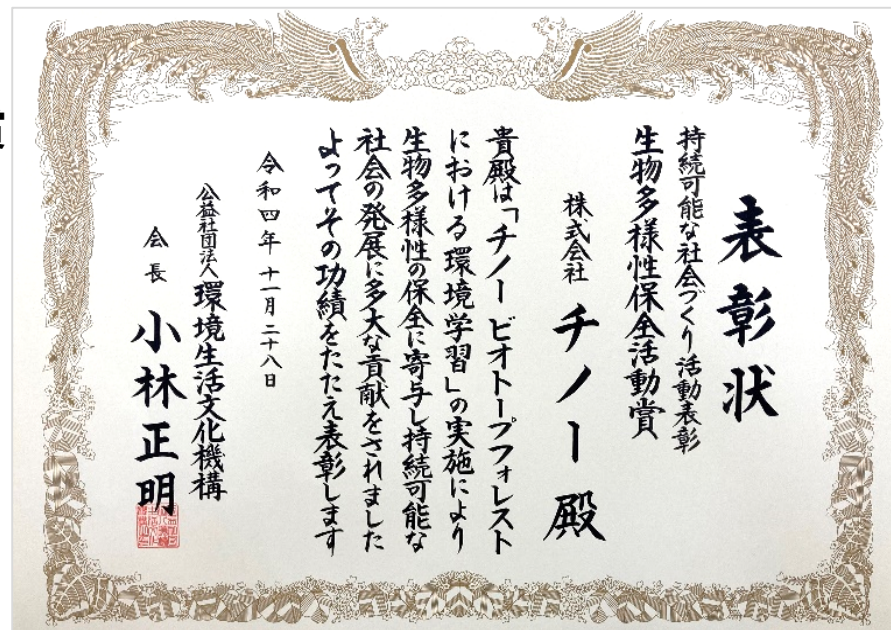 表彰状
持続可能な社会づくり活動表彰
生物多様性保全活動賞
株式会社 チノー 殿
貴殿は「チノー ビオトープフォレスト
における環境学習」の実施により
生物多様性の保全に寄与し持続可能な
社会の発展に多大な貢献をされました
よってその功績をたたえ表彰します
令和四年 十一月 二十八日
公益社団法人 環境生活文化機構
会長 小林正明